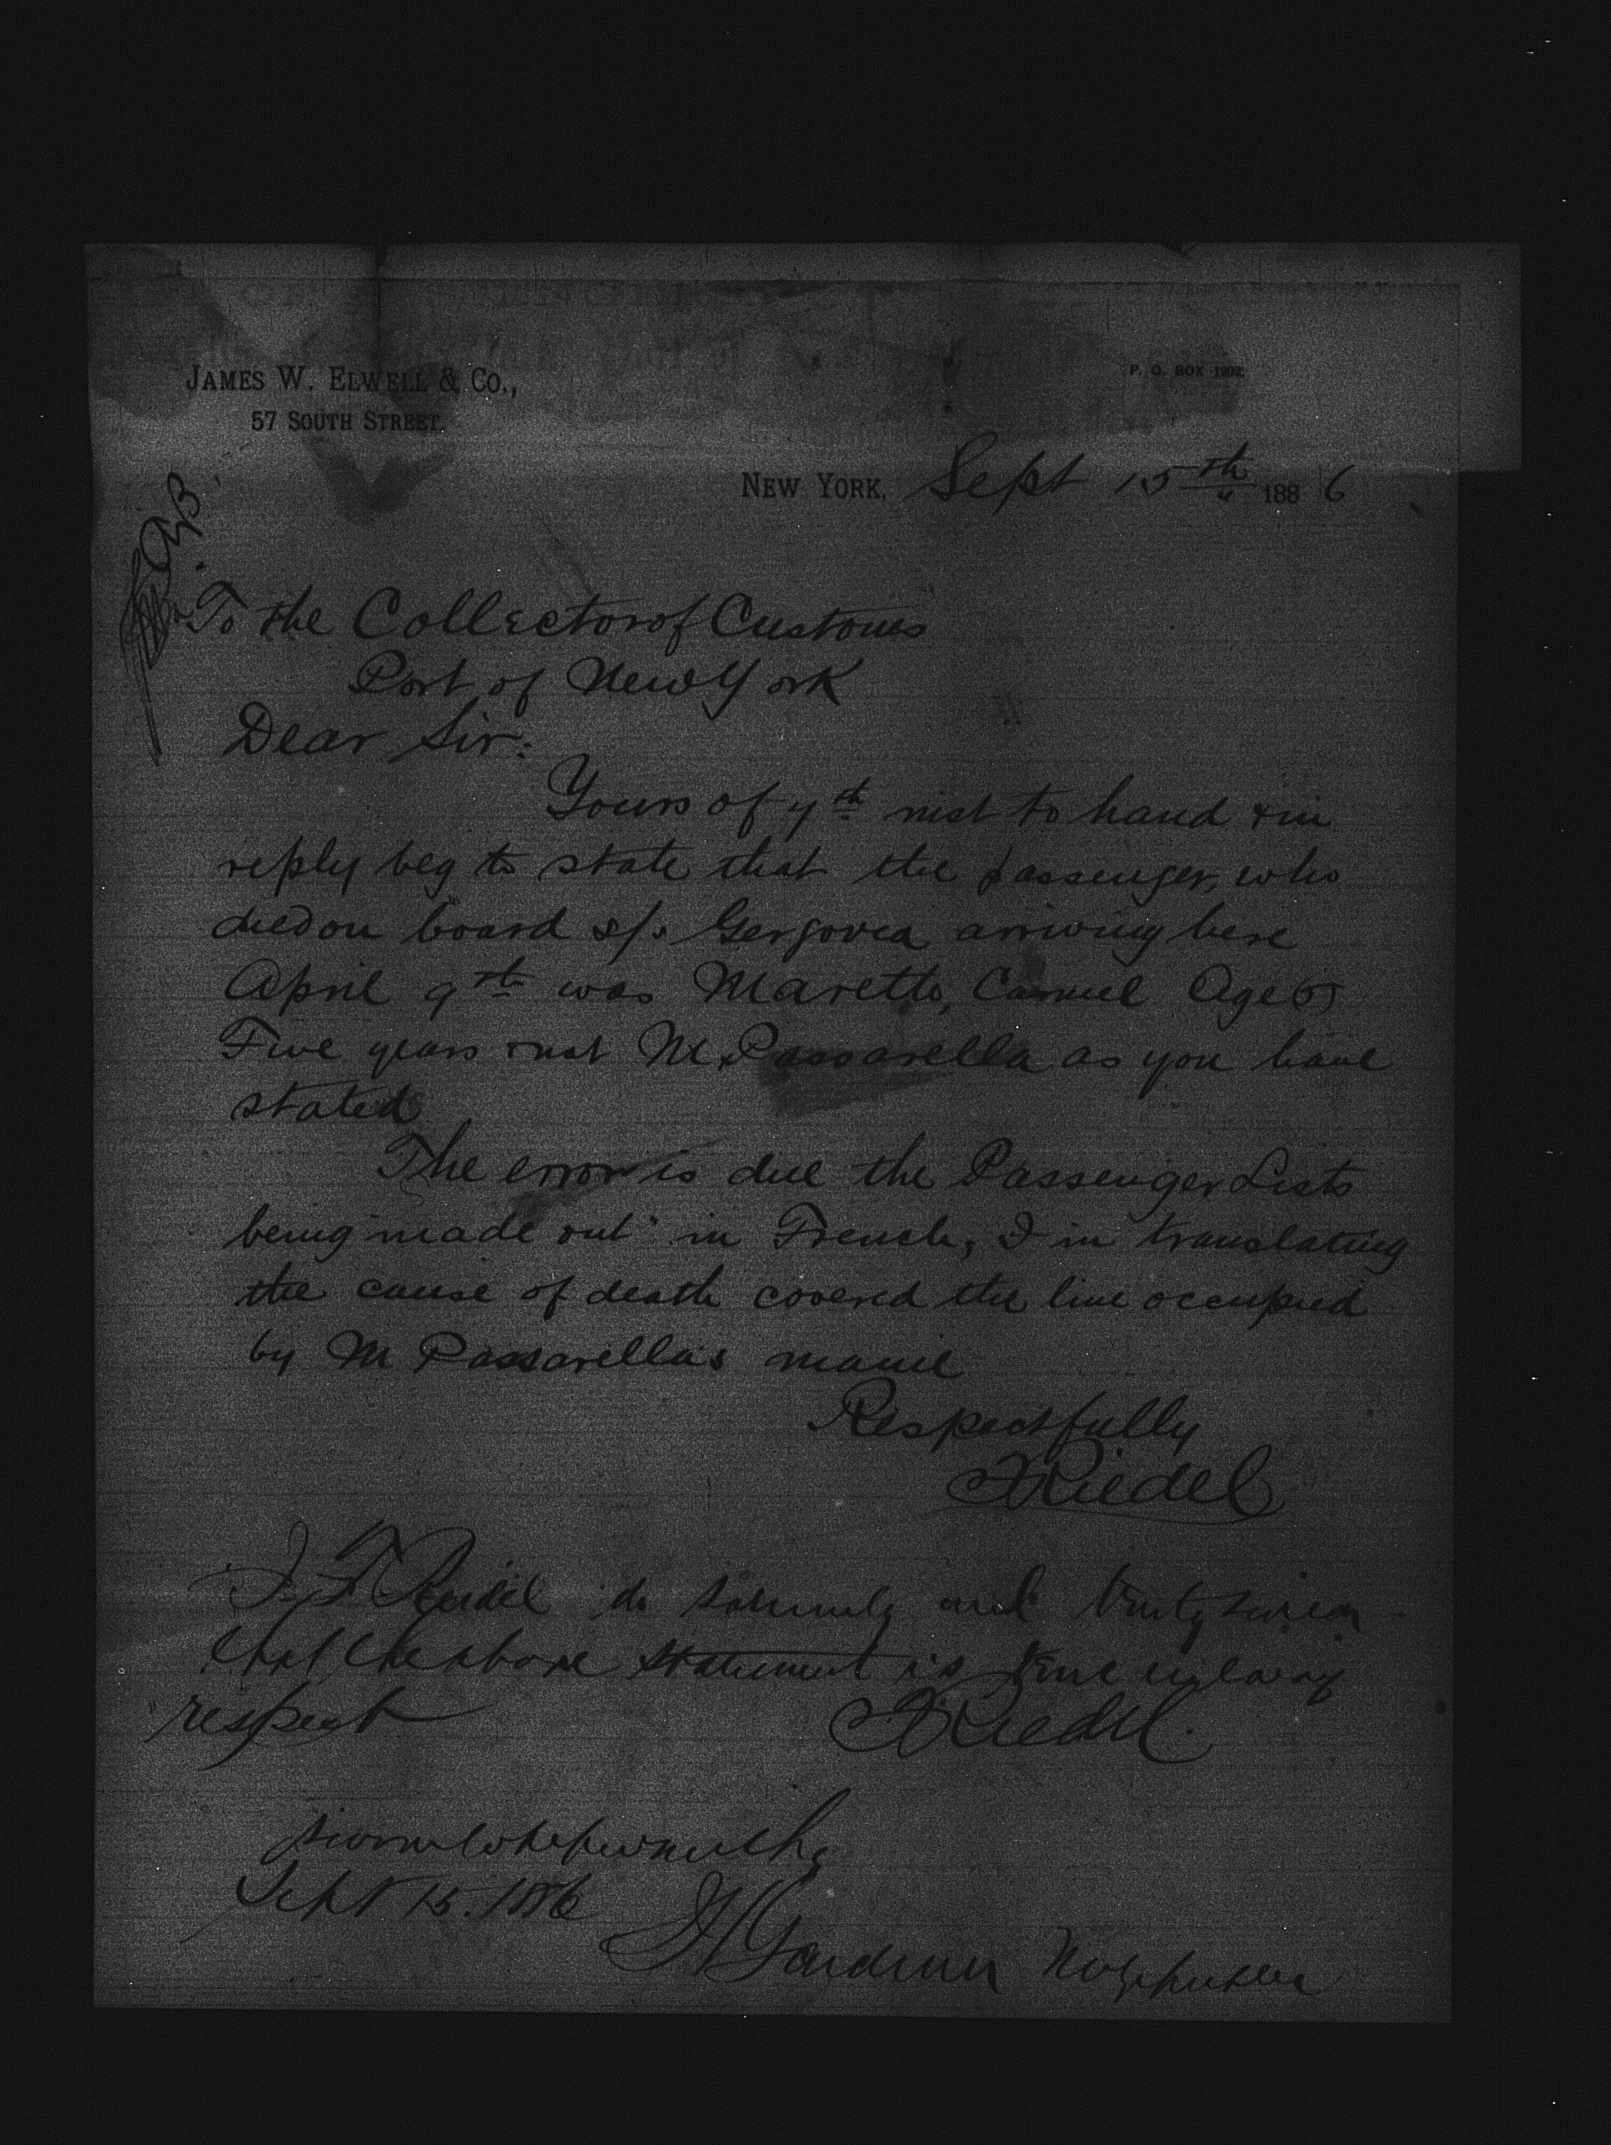 JAMES W. ELWELL & CO.,
57 SOUTH STREET.
P. O. BOX
NEW YORK, Sept 15th 1886
To the Collector of Customs
Port of New York
Dear Sir:
Yours of 7th inst to hand & in
reply beg to state that the passenger, who
died on board s/s Gergovia arriving here
April 9th was Maretto, Carmel Age (5)
Five years & not M. Passarella as you have
stated
The error is due the Passenger Lists
being "made out" in French, I in translating
the cause of death covered the line occupied
by M Passarella's name
Respectfully
F Riedel
I, F Riedel do solemnly and truly swear
that the above statement is true in every
respect
F Riedel
Sworn to before me this
Sept 15. 1886
Gardiner Noty Public